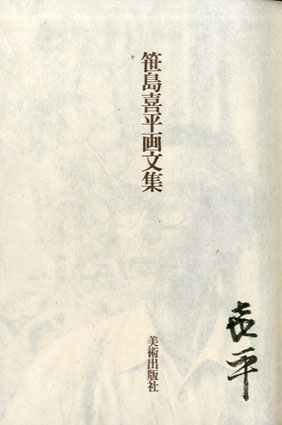 笹島喜平画文集
美術出版社
喜平